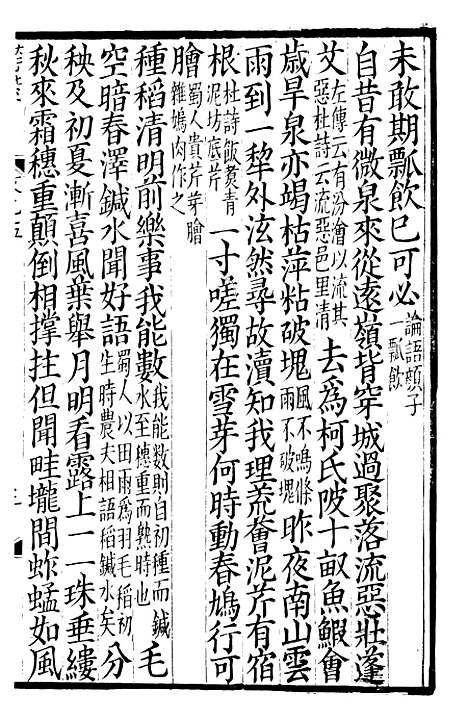 未敢期瓢飲已可必論語顏子一瓢飲
自昔有微泉來從遠嶺背穿城過聚落流惡壯蓬
艾左傳云有汾澮以流其惡杜詩云流惡邑里清去爲柯氏陂十畝魚鰕會
歲旱泉亦竭枯萍粘破塊風不鳴條雨不破塊昨夜南山雲
雨到一犂外泫然尋故瀆知我理荒薈泥芹有宿
根杜詩飯煑青泥坊底芹一寸嗟獨在雪芽何時動春鳩行可
膾蜀人貴芹芽膾雜鳩肉作之
種稻清明前樂事我能數我能數則自初種而鍼水至穗重而熟時也毛
空暗春澤鍼水聞好語蜀人以田雨爲羽毛稻初生時農夫相語稻鍼水矣分
秧及初夏漸喜風葉舉月明看露上一一珠垂縷
秋來霜穗重顛倒相撐拄但聞畦壠間蚱蜢如風